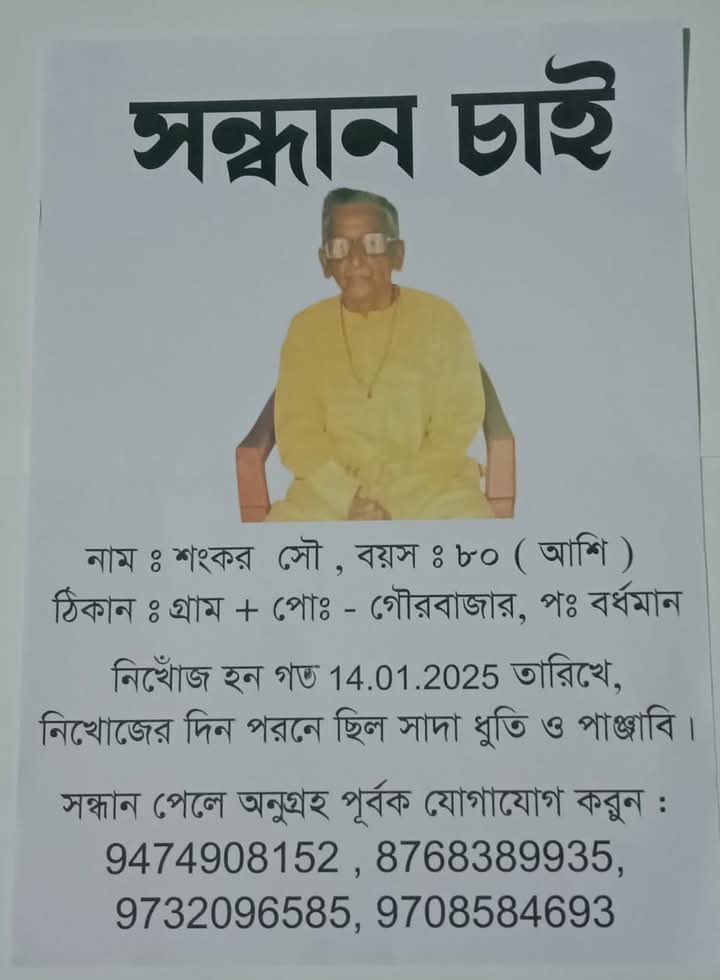 সন্ধান চাই
নাম ঃ শংকর সৌ , বয়স ঃ ৮০ ( আশি )
ঠিকান ঃ গ্রাম + পোঃ - গৌরবাজার, পঃ বর্ধমান
নিখোঁজ হন গত 14.01.2025 তারিখে,
নিখোজের দিন পরনে ছিল সাদা ধুতি ও পাঞ্জাবি।
সন্ধান পেলে অনুগ্রহ পূর্বক যোগাযোগ করুন :
9474908152 , 8768389935,
9732096585, 9708584693